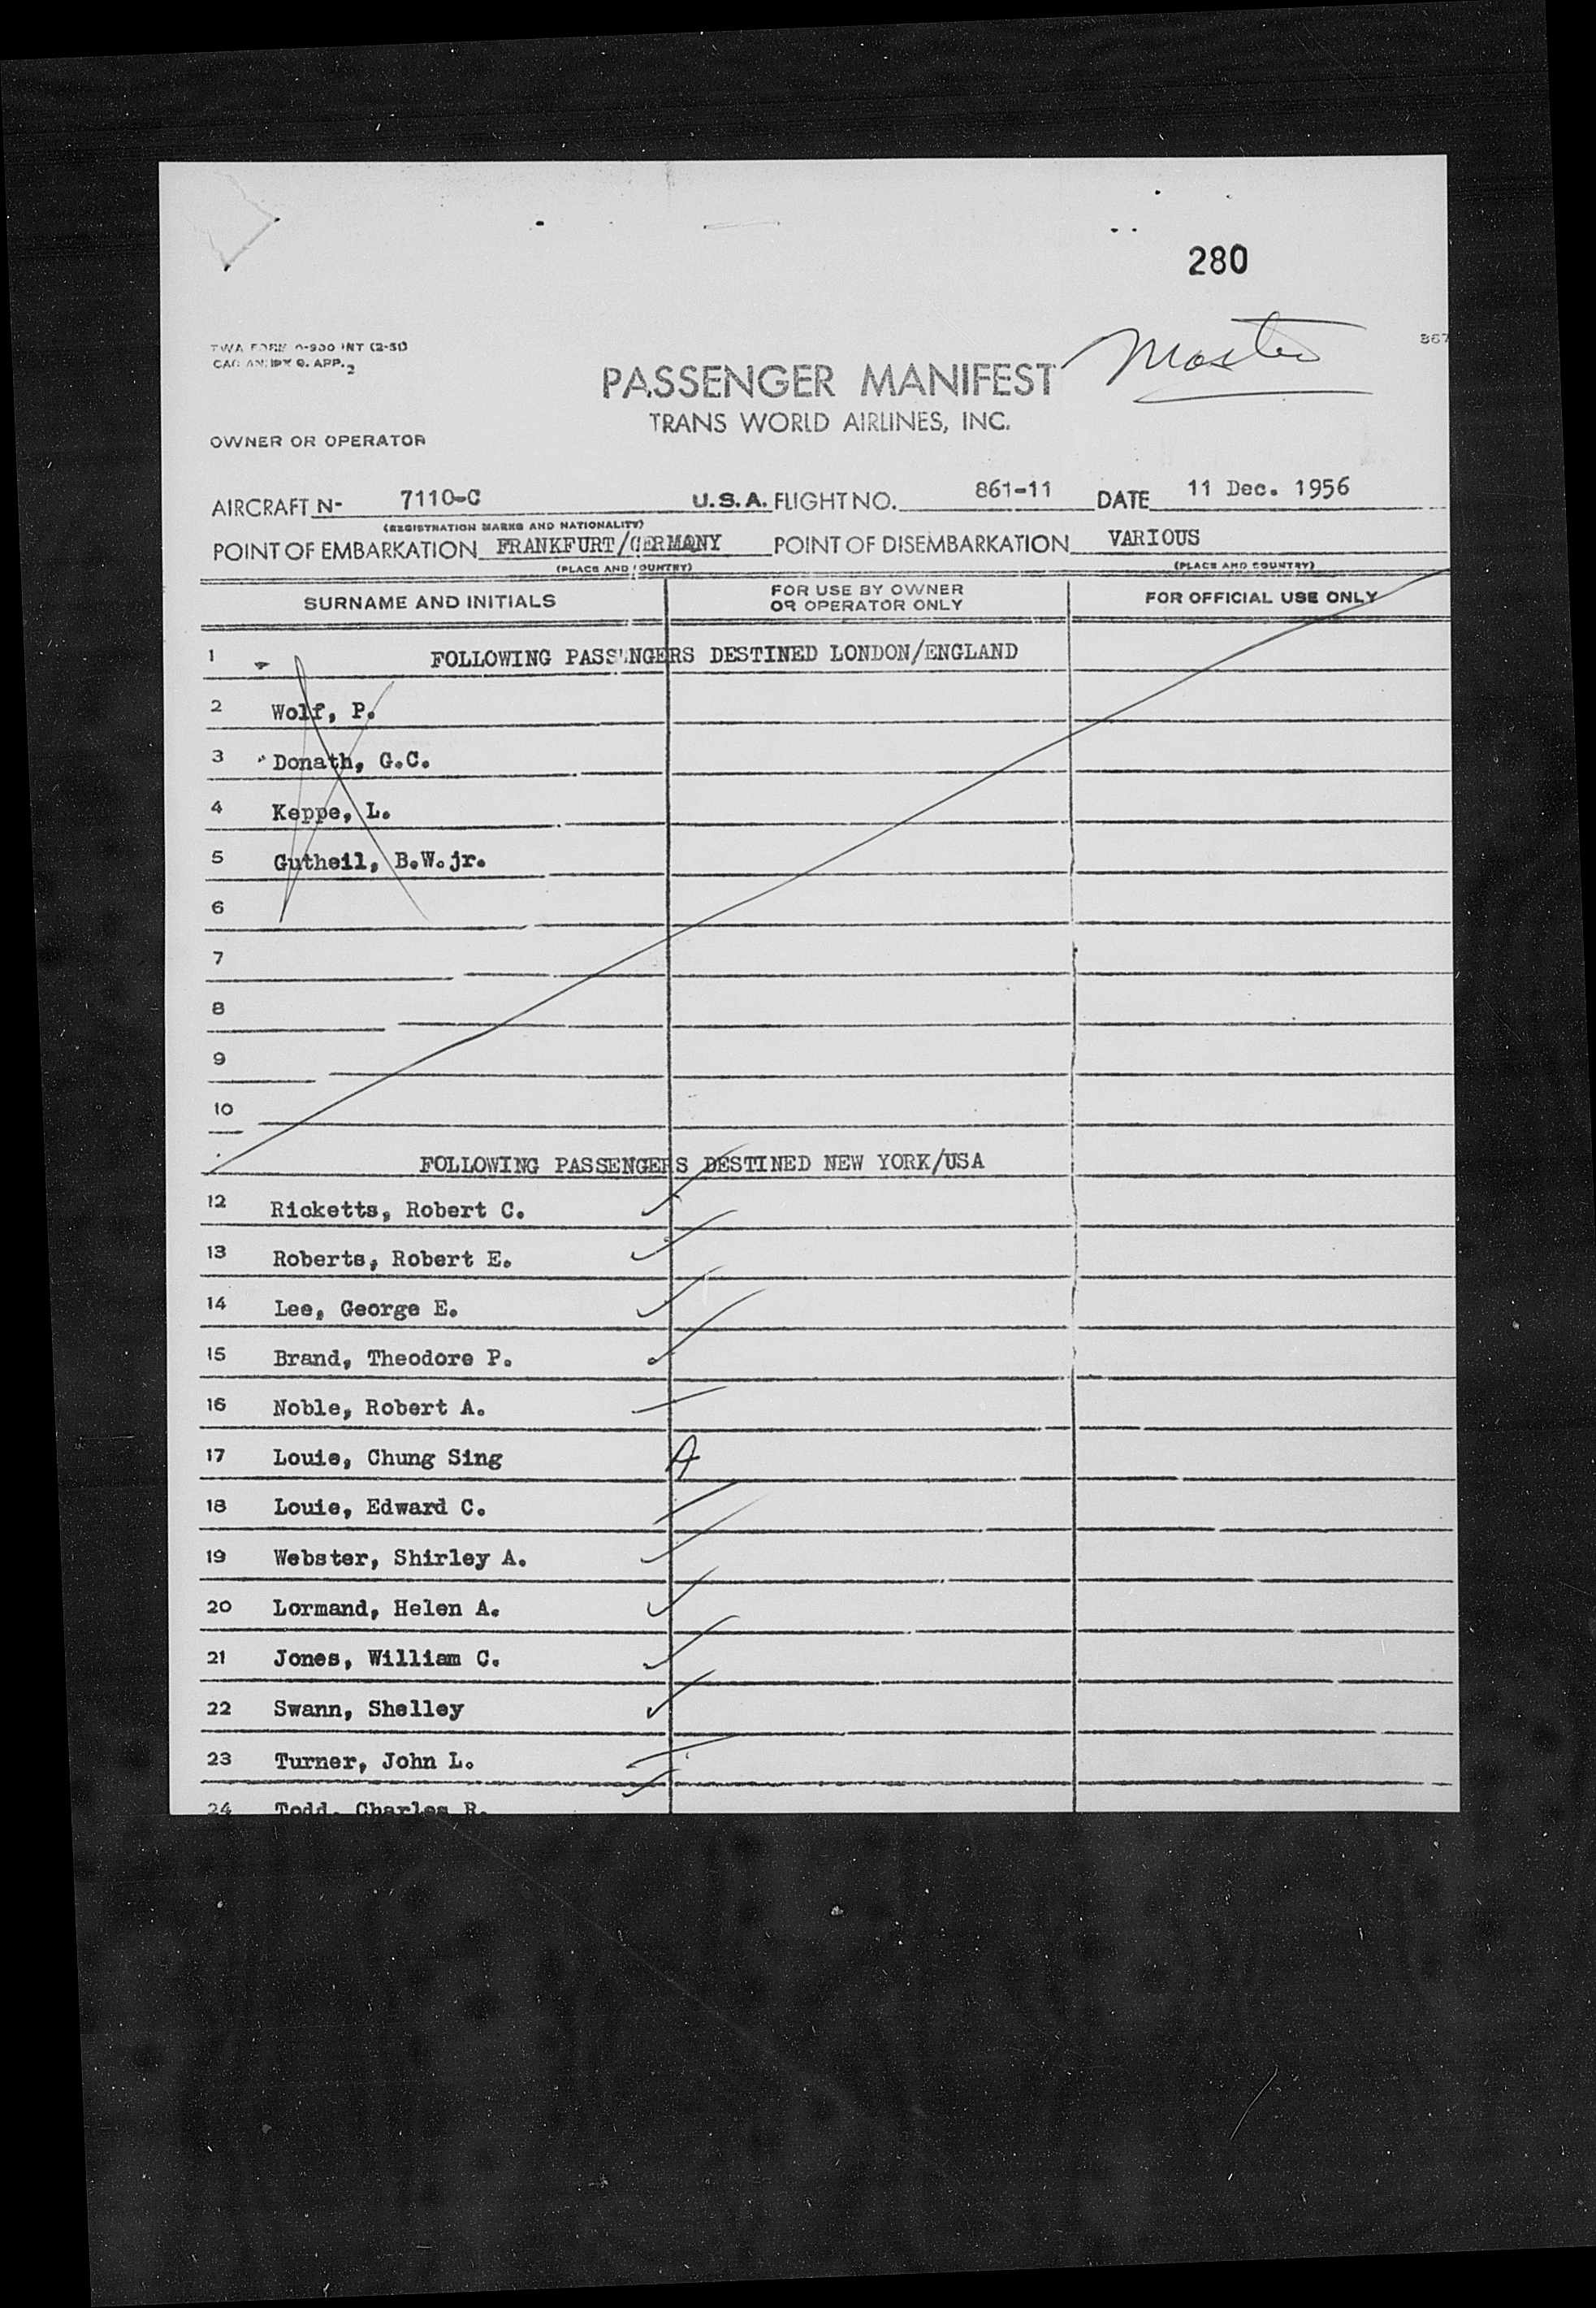 280
Master
867
TWA FORM 0-900 INT (2-51)
CAO ANNEX 9. APP. 2
PASSENGER MANIFEST
TRANS WORLD AIRLINES, INC.
OWNER OR OPERATOR
AIRCRAFT N- 7110-C U.S.A. FLIGHT NO. 861-11 DATE 11 Dec. 1956
(REGISTRATION MARKS AND NATIONALITY)
POINT OF EMBARKATION FRANKFURT/GERMANY POINT OF DISEMBARKATION VARIOUS
(PLACE AND COUNTRY) (PLACE AND COUNTRY)
SURNAME AND INITIALS FOR USE BY OWNER OR OPERATOR ONLY FOR OFFICIAL USE ONLY
1 FOLLOWING PASSENGERS DESTINED LONDON/ENGLAND
2 Wolf, P.
3 Donath, G.C.
4 Keppe, L.
5 Gutheil, B.W.jr.
6
7
8
9
10
FOLLOWING PASSENGERS DESTINED NEW YORK/USA
12 Ricketts, Robert C.
13 Roberts, Robert E.
14 Lee, George E.
15 Brand, Theodore P.
16 Noble, Robert A.
17 Louie, Chung Sing A
18 Louie, Edward C.
19 Webster, Shirley A.
20 Lormand, Helen A.
21 Jones, William C.
22 Swann, Shelley
23 Turner, John L.
24 Todd, Charles R.